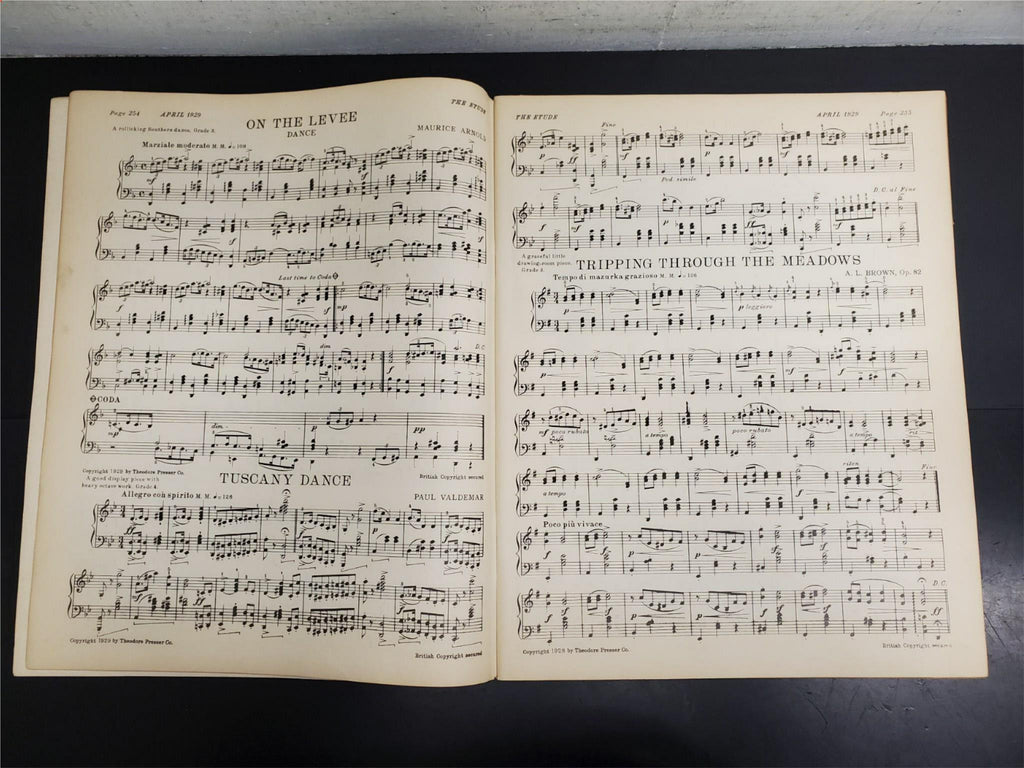 Page 254 APRIL 1929 THE ETUDE
ON THE LEVEE
DANCE
A rollicking Southern dance. Grade 3.
MAURICE ARNOLD
Marziale moderato M. M. ♩= 108
Last time to Coda
dim
D.C.
CODA
mp
dim.
p
pp
Copyright 1929 by Theodore Presser Co.
British Copyright secured
TUSCANY DANCE
A good display piece with
heavy octave work. Grade 4.
Allegro con spirito M. M. ♩= 126
PAUL VALDEMAR
Copyright 1929 by Theodore Presser Co.
British Copyright secured
THE ETUDE APRIL 1929 Page 255
Fine
p
Ped. simile
D.C. al Fine
A graceful little
drawing-room piece.
Grade 3.
TRIPPING THROUGH THE MEADOWS
A. L. BROWN, Op. 82
Tempo di mazurka grazioso M. M. ♩= 126
p leggiero
mf poco rubato
a tempo
poco rubato
a tempo
riten
Fine
a tempo
Poco più vivace
D.C.
Copyright 1928 by Theodore Presser Co.
British Copyright secured